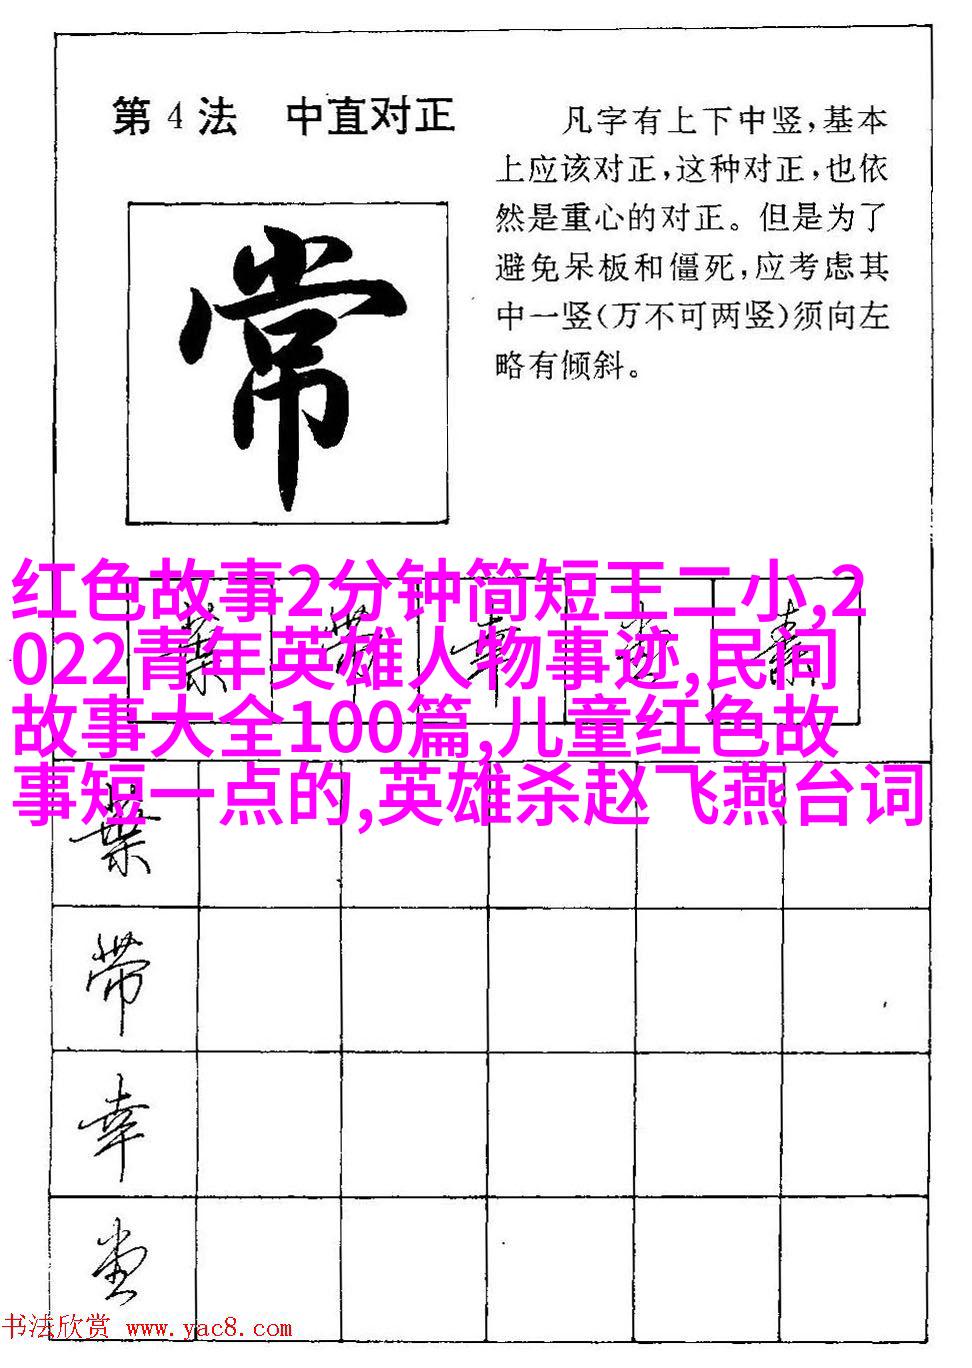 第4法 中直对正
凡字有上下中竖,基本
上应该对正,这种对正,也依
然是重心的对正。但是为了
避免呆板和僵死,应考虑其
中一竖(万不可两竖)须向左
略有倾斜。
常
红色故事2分钟简短王二小,2
022青年英雄人物事迹,民间
故事大全100篇,儿童红色故
事短一点的,英雄杀赵飞燕台词
葉
带
幸
书法欣赏 www.yac8.com